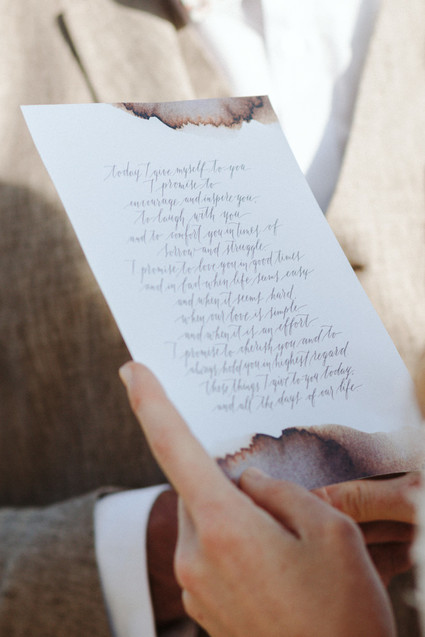 today I give myself to you
I promise to
encourage and inspire you,
to laugh with you
and to comfort you in times of
sorrow and struggle
I promise to love you in good times
and in bad when life seems easy
and when it seems hard
when our love is simple
and when it is an effort
I promise to cherish you and to
always hold you in highest regard
these things I give to you today,
and all the days of our life